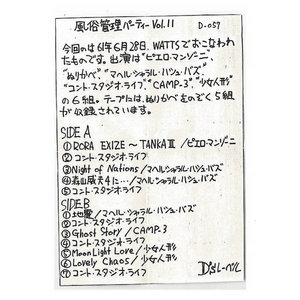 風俗管理パーティー Vol.11 D-057
今回のは61年6月28日、WATTSでおこなわれ
たものです。出演は"ピエロ・マンゾーニ"、
"ぬりかべ"、"マヘル・シャラル・ハシュ・バズ"、
"コント・スタジオ・ライフ"、"CAMP-3"、"少女人形"
の6組。テープには、ぬりかべをのぞく5組
が収録されています。
SIDE A
①RORA EXIZE 〜 TANKA Ⅲ /ピエロ・マンゾーニ
②コント・スタジオ・ライフ
③Night of Nations /マヘル・シャラル・ハシュ・バズ
④森山威夫4に… /マヘル・シャラル・ハシュ・バズ
⑤コント・スタジオ・ライフ
SIDE B
①地霊 /マヘル・シャラル・ハシュ・バズ
②コント・スタジオ・ライフ
③Ghost Story / CAMP.3
④コント・スタジオ・ライフ
⑤Moon Light Love / 少女人形
⑥Lovely Chaos / 少女人形
⑦コント・スタジオ・ライフ
D'sレーベル